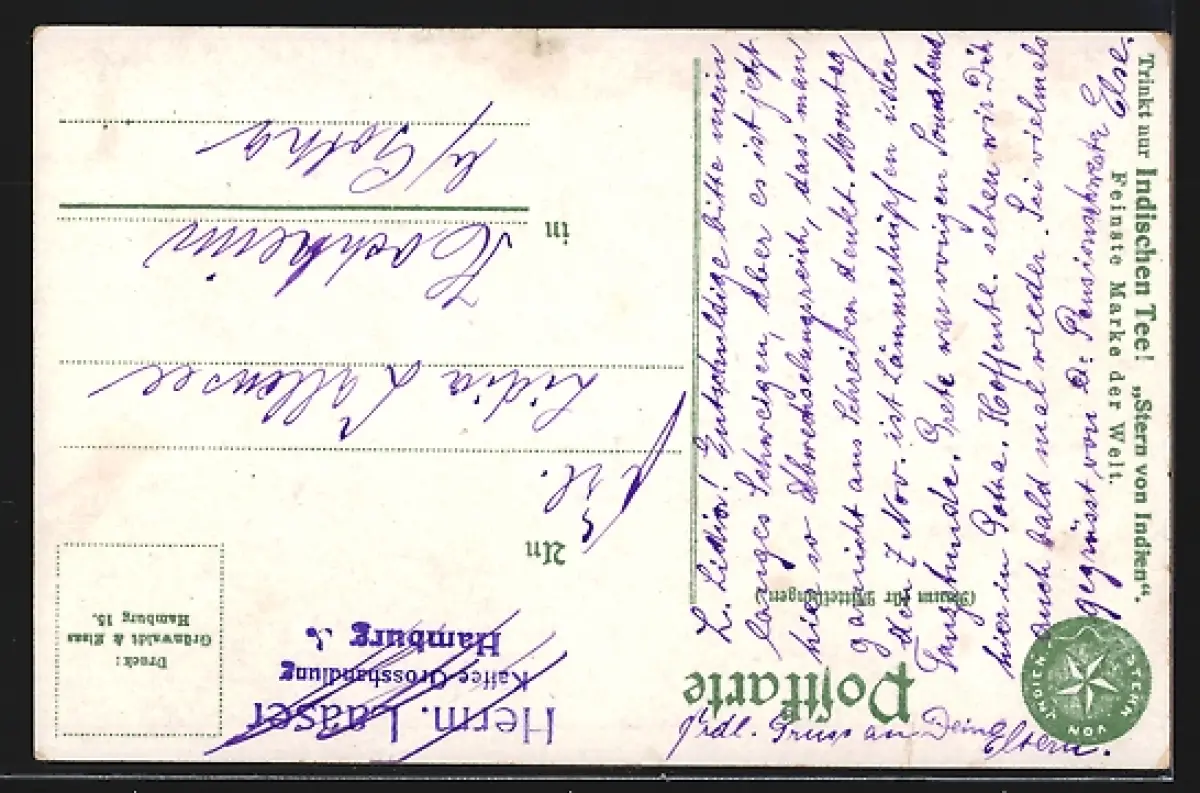 Postkarte
(Raum für Mitteilungen)
An
Frl.
Lidia Lollensee
in
Hochheim
b/ Gotha
Herm. Laaser
Kaffee-Grosshandlung
Hamburg
Druck:
Grünwaldt & Elaas
Hamburg 15.
Trinkt nur Indischen Tee! „Stern von Indien“.
Feinste Marke der Welt.
STERN VON INDIEN
L. Lidia! Entschuldige bitte mein
langes Schweigen, aber es ist jetzt
hier so Abwechselungsreich, dass man
garnicht ans Schreiben denkt. Montag
den 7 Nov. ist Lämmerhüpfen i. der
Tanzstunde. Grete war vorigen Sonnabend
hier in Gotha. Hoffentl. sehen wir Dich
auch bald mal wieder. Sei vielmals
gegrüsst von D. Pensionsschwester Else.
Frdl. Gruss an Deine Eltern.